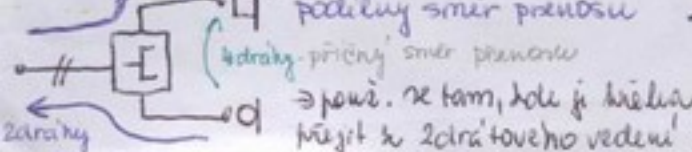 podélný směr přenosu
4dráhy - příčný směr přenosu
⇒ použ. se tam, kde je třeba
2dráhy
přejít z 2drátového vedení